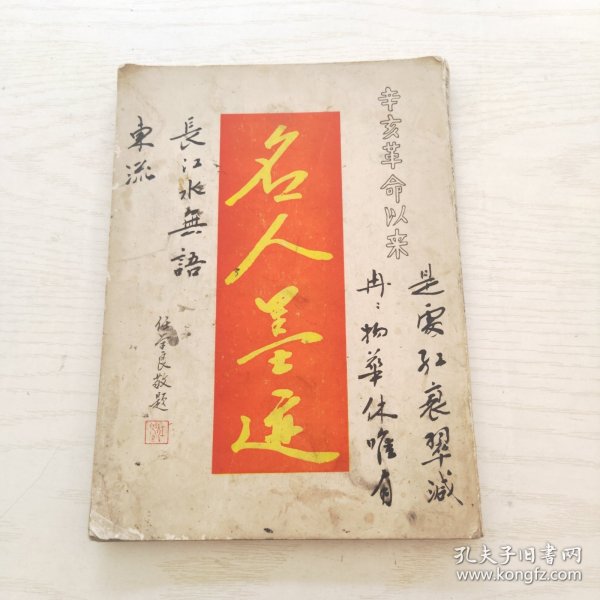 辛亥革命以来
名人墨迹
是處红衰翠減
冉冉物華休唯有
長江水無語
東流
任学良敬題
孔夫子旧书网
www.kongfz.com